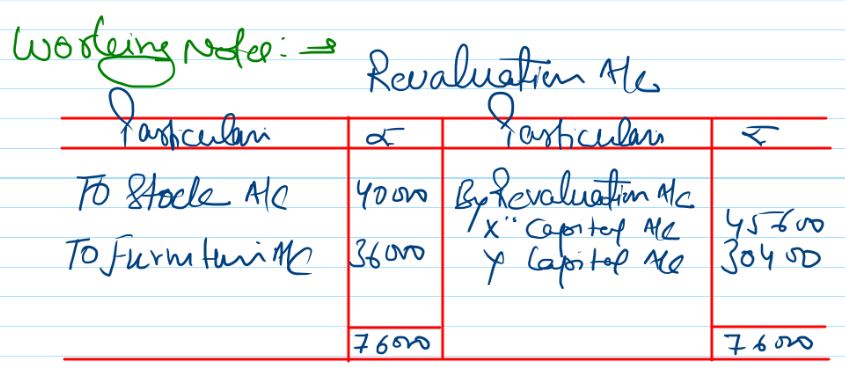 Working Notes: ⇒
Revaluation A/c
Particulars ₹ Particulars ₹
To Stock A/c 40000 By Revaluation A/c
X" Capital A/c 45600
To Furniture A/c 36000 Y Capital A/c 30400
76000 76000